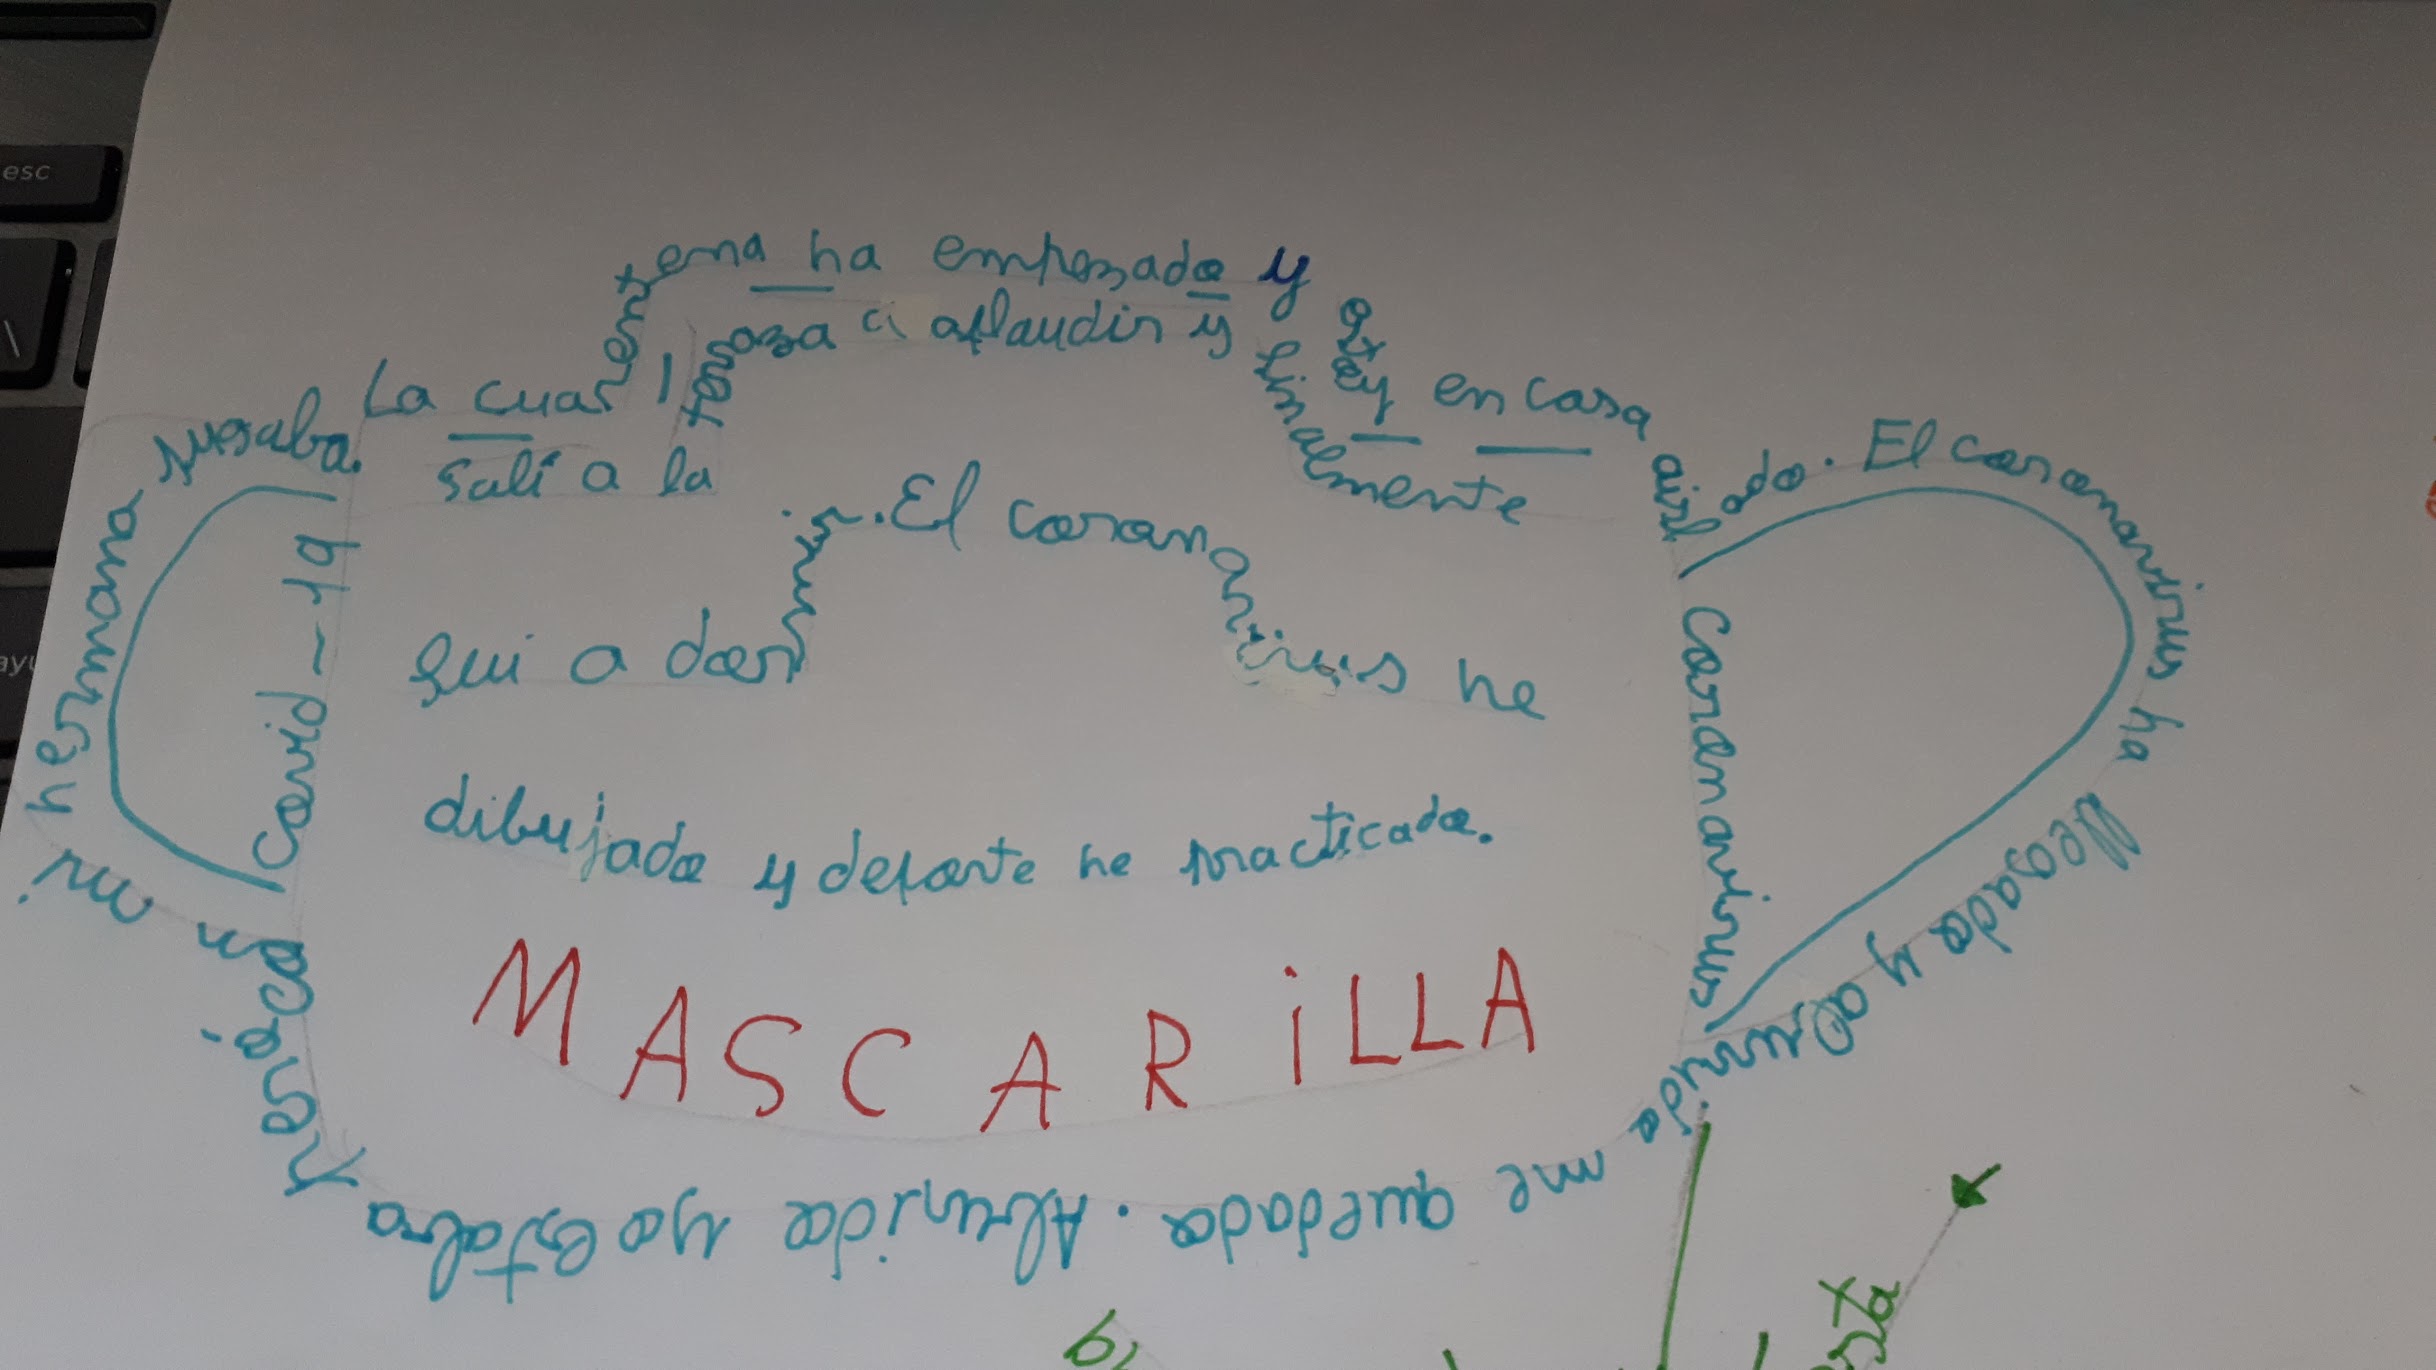 La cuarentena ha empezado y estoy en casa aislado. El coronavirus ha llegado y aburrido me quedado. Aburrido yo estaba y
mi hermana jugaba.
Covid-19
Salí a la terraza a aplaudir y finalmente
fui a dormir. El coronavirus he
dibujado y deporte he practicado.
coronavirus
MASCARiLLA